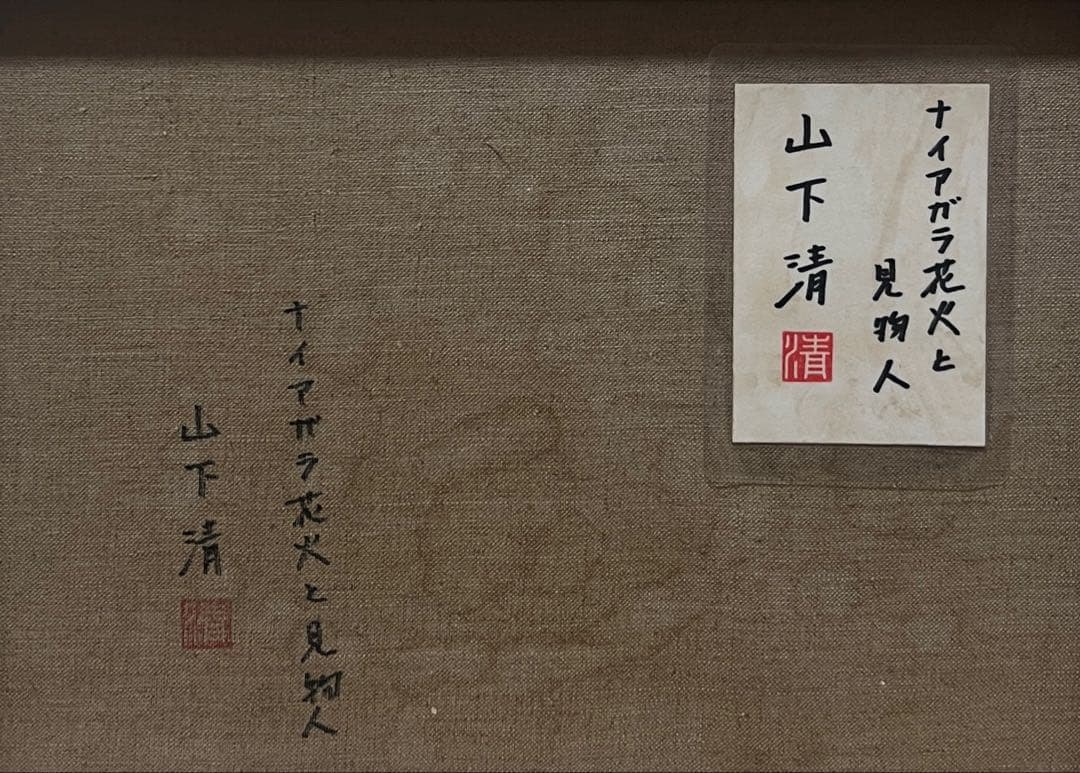 ナイアガラ花火と
見物人
山下清
清
ナイアガラ花火と見物人
山下清
清